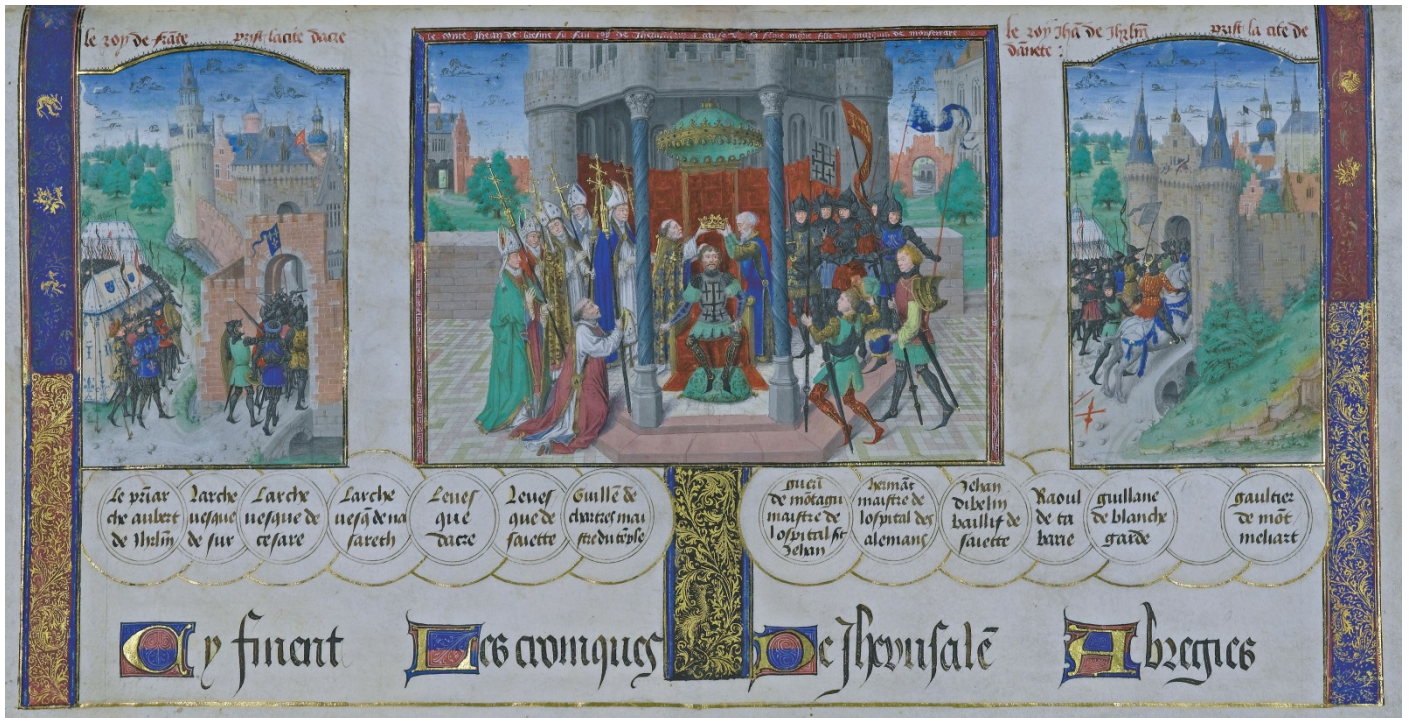 le roy de frāce prist la cite dacre
le conte Jhean de briene fu fait roy de Jherusalem a cause de sa feme marie fille du marquis de monferare
le roy Jhā de Jhrlm̄ prist la cite de
damete :
Le p̄riar
che aubert
de Jhrlm̄
Larche
uesque
de sur
Larche
uesque de
cesare
Larche
uesq̄ de na
sareth
Leues
que
dacre
Leues
que de
saiette
Guill'e de
chartres mai
stre du tēple
guerī
de mōtagu
maistre de
lospital st
Jehan
hermāt
maistre de
lospital des
alemans
Jehan
dibelin
baillif de
saiette
Raoul
de ta
barie
guillame
de blanche
garde
gaultier
de mōt
meliart
Cy finent Les croniques De Jherusalē Abregies